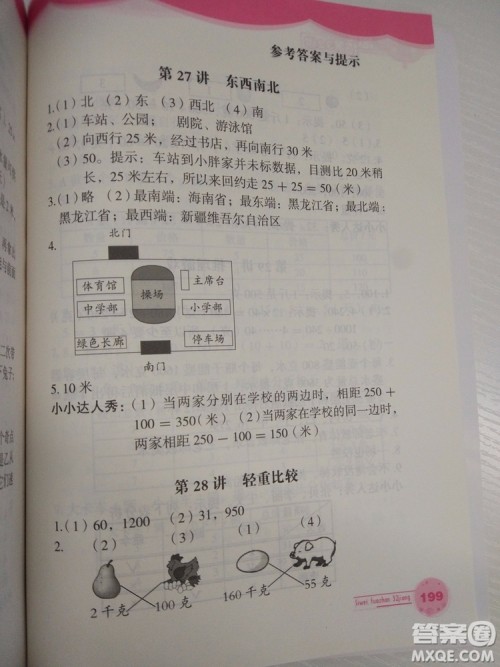 参考答案与提示
第 27 讲 东西南北
1.(1) 北 (2) 东 (3) 西北 (4) 南
2.(1) 车站、公园； 剧院、游泳馆
(2) 向西行 25 米，经过书店，再向南行 30 米
(3) 50。提示：车站到小胖家并未标数据，目测比 20 米稍
长，25 米左右，所以来回约走 25 + 25 = 50(米)
3.(1) 略 (2) 最南端：海南省；最东端：黑龙江省；最北端：
黑龙江省；最西端：新疆维吾尔自治区
4.
北门
体育馆 操场 主席台
中学部 小学部
绿色长廊 停车场
南门
5. 10 米
小小达人秀：(1) 当两家分别在学校的两边时，相距 250 +
100 = 350(米) (2) 当两家在学校的同一边时，
两家相距 250 − 100 = 150(米)
第 28 讲 轻重比较
1.(1) 60，1200 (2) 31，950
2. (2) (3) (1) (4)
2 千克 100 克 160 千克 55 克
199
答案圈
MXQE.COM